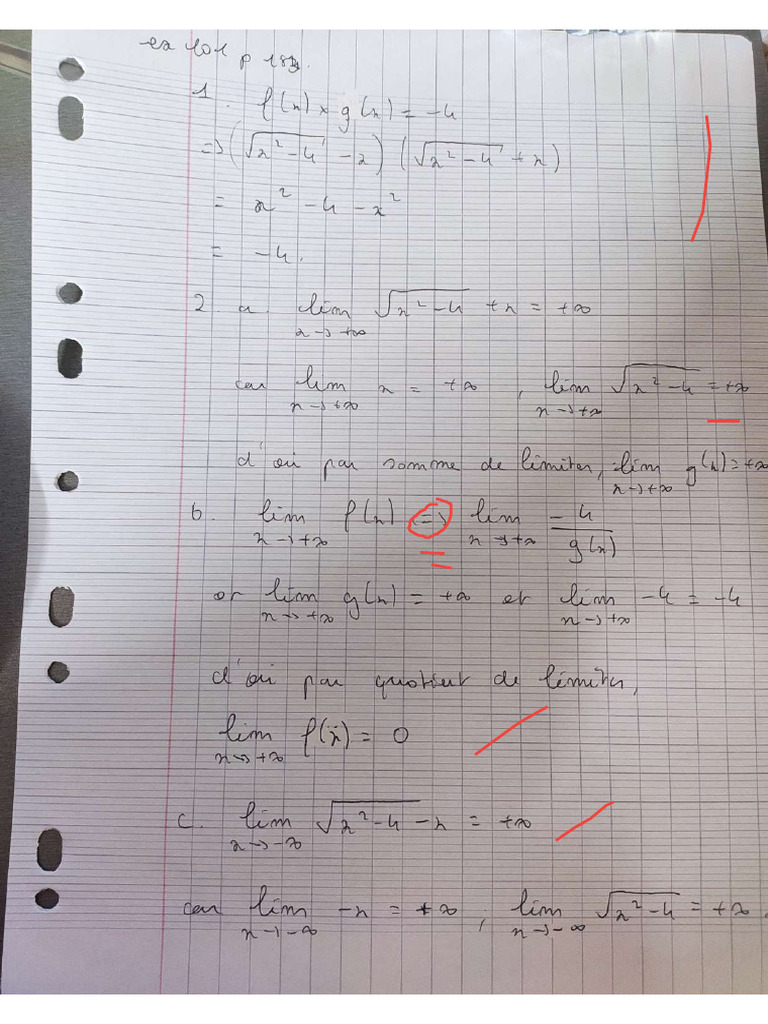 ex 101 p 183.
1. f(x) × g(x) = -4
=> (√(x² - 4) - x) (√(x² - 4) + x)
= x² - 4 - x²
= -4.
2. a. lim x→+∞ √(x² - 4) + x = +∞
car lim x→+∞ x = +∞, lim x→+∞ √(x² - 4) = +∞
d'où par somme de limites, lim x→+∞ g(x) = +∞
b. lim x→+∞ f(x) => = lim x→+∞ -4/g(x)
or lim x→+∞ g(x) = +∞ et lim x→+∞ -4 = -4
d'où par quotient de limites,
lim x→+∞ f(x) = 0
c. lim x→-∞ √(x² - 4) - x = +∞
car lim x→-∞ -x = +∞, lim x→-∞ √(x² - 4) = +∞.